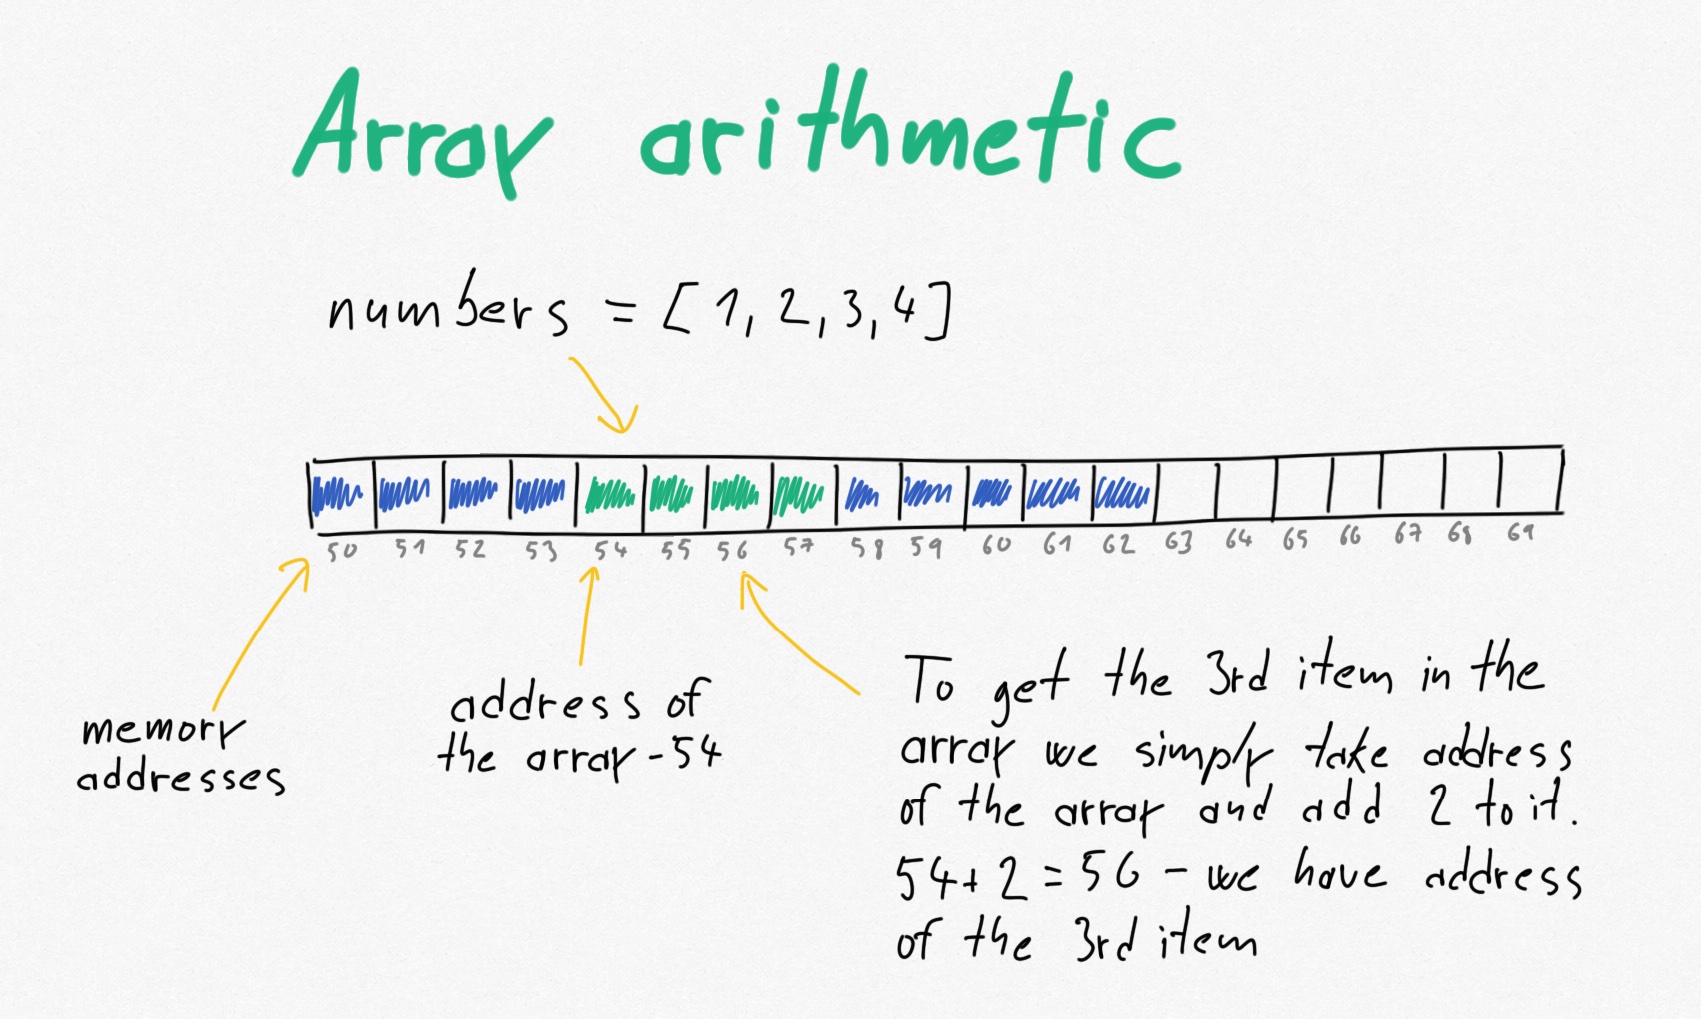 Array arithmetic
numbers = [1, 2, 3, 4]
50 51 52 53 54 55 56 57 58 59 60 61 62 63 64 65 66 67 68 69
memory
addresses
address of
the array - 54
To get the 3rd item in the
array we simply take address
of the array and add 2 to it.
54+2=56 - we have address
of the 3rd item